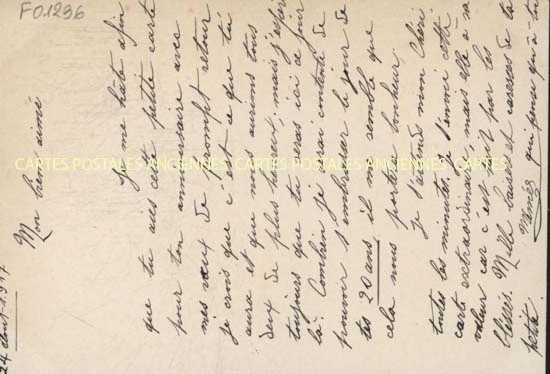 F01236
CARTES POSTALES ANCIENNES CARTES POSTALES ANCIENNES CARTES
24 Aout 1917
Mon bien aimé,
Je me hate afin
que tu aies cette petite carte
pour ton anniversaire avec
mes vœux de prompt retour
je crois que c'est ce que tu
auras et que nous aurions tous
deux de plus heureux, mais j'espère
toujours que tu seras ici ce jour
là. Combien je serai contente de
pouvoir t'embrasser le jour de
tes 20 ans il me semble que
cela nous portera bonheur.
Je t'attends mon Chéri
toutes les minutes, je t'envoie cette
carte extraordinaire, mais elle a sa
valeur car c'est fait par les
blessés. Mille baisers et caresses de ta
petite qui pense qu'à toi